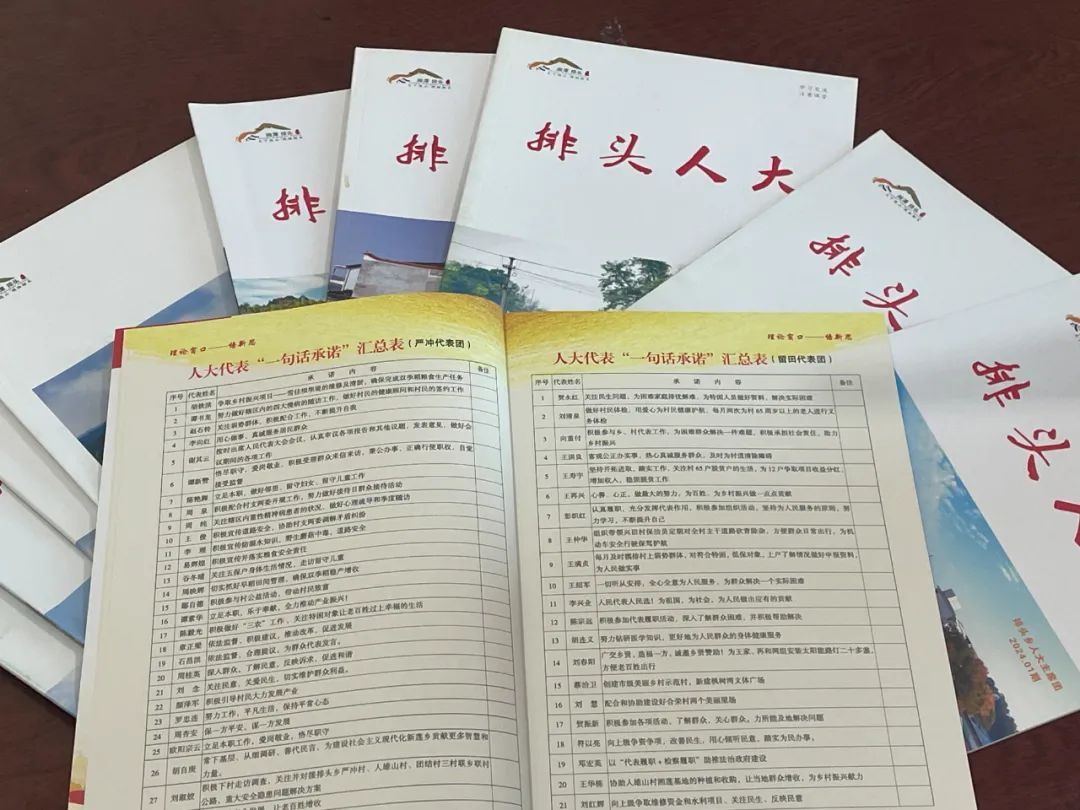 排
排
排头人大
学习交流
注意保管
排头
排头
排头乡人大主席团
2024.01期
理论窗口——悟新思
人大代表“一句话承诺”汇总表（严冲代表团）
序号 代表姓名 承 诺 内 容 备注
1 争取乡村振兴项目
2 谭书龙 努力做好辖区内的四大慢病的随访工作，做好村民的健康顾问和村民的签约工作
3 赵石铃 关注弱势群体，积极配合工作，不断提升自我
4 李向红 用心做事、真诚服务居民群众
5 谢其云 按时出席人民代表大会会议，认真审议各项报告和其他议题，发表意见，做好会议期间的各项工作
6 谢新赞 恪尽职守，爱岗敬业，积极受理群众来信来访，秉公办事，正确行使职权，自觉接受监督
7 陈艳舞 立足本职，做好邻里、留守妇女、留守儿童工作
8 周泉 积极配合村支两委开展工作，努力做好接待日群众接待活动
9 周纯 关注辖区内重性精神病患者的状况，做好心理疏导和季度随访
10 王俊 积极宣传道路安全，协助村支两委调解矛盾纠纷
11 李理 积极宣传防溺水知识，野生蘑菇中毒、道路安全
12 易辉煌 积极宣传并落实粮食安全责任
13 谷冬晴 关注五保户身体生活情况，走访留守儿童
14 周映辉 切实抓好早稻田间管理，确保双季稻稳产增收
15 鄢自德 积极参与村公益活动，带动村民致富
16 谭素华 立足本职，乐于奉献，全力推动产业振兴！
17 陈毅光 积极做好“三农”工作，关注特困对象让老百姓过上幸福的生活
18 章正耀 依法监督，积极建议，推动改革，促进发展
19 石昌洪 依法监督，合理提议，为群众代表发言。
20 周桂英 深入群众、了解民意，反映诉求，促进和谐
21 刘念 关注民意，关爱民生，切实维护群众利益。
22 颜泽军 积极引导村民大力发展产业
23 罗忠连 努力工作，平凡生活，保持平常心态
24 周香安 保一方平安、谋一方发展
25 欧阳宗云 立足本职工作，爱岗敬业，恪尽职守
26 胡自庚 常下基层、从细调研、善代民言，为建设社会主义现代化新莲乡贡献更多智慧和力量。
27 刘淑姣 积极下村走访调查，关注并对援排头乡严冲村、人雄山村、团结村三村联乡联村公路，重大安全隐患问题解决方案
让老百姓增收
理论窗口——悟新思
人大代表“一句话承诺”汇总表（留田代表团）
序号 代表姓名 承 诺 内 容 备注
1 贺永红 关注民生问题，为困难家庭排忧解难，为特困人员做好资料，解决实际困难
2 刘清泉 做好村民体检，用爱心为村民健康护航，每月两次为村65周岁以上的老人进行义务体检
3 向重付 积极参与乡、村代表工作，为困难群众解决一件难题，积极承担社会责任，助力乡村振兴
4 王洪良 客观公正办实事，热心真诚服务群众，及时为村道清除障碍
5 王寿宇 坚持开拓进取，踏实工作，关注村65户脱贫户的生活，为12户争取项目收益分红，增加收入，稳固脱贫工作
6 王再兴 心善、心正、做最大的努力，为百姓、为乡村振兴做一点点贡献
7 彭炽红 认真履职，充分发挥代表作用，积极参加组织活动，坚持为人民服务的原则，努力学习，不断提升自己
8 王仲华 组织带领兴田村保洁员定期对全村主干道路砍青除杂，方便群众日常出行，为机动车安全行驶保驾护航
9 王满贞 每月及时摸排村上弱势群体，对符合特困，低保对象，上户了解情况做好申报资料，为人民做实事
10 王绍军 一切听从安排，全心全意为人民服务，为群众解决一个实际困难
11 李兴业 人民代表人民选！为祖国，为社会，为人民做出应有的贡献
12 陈宗远 积极参加代表履职活动，深入了解群众困难，并积极帮助解决
13 胡连义 努力钻研医学知识，更好地为人民群众的身体健康服务
14 刘春阳 广交乡贤，造福一方，诚邀乡贤赞助！为王家、再和两组安装太阳能路灯二十多盏，方便老百姓出行
15 蔡治卫 创建市级美丽乡村示范村，新建枫树湾文体广场
16 刘慧 配合和协助建设好合荣村两个美丽屋场
17 贺振新 积极参加各项活动，了解群众、关心群众，力所能及地解决问题
18 符以亮 向上级争资争项，改善民生，用心倾听民意，踏实为民办事。
19 邓宏英 以“代表履职+检察履职”助推法治政府建设
20 王华楠 协助人雄山村湘莲基地的种植和收购，让当地群众增收，为乡村振兴献力
21 刘红辉 向上级争取维修资金和水利项目、关注民生、反映民意